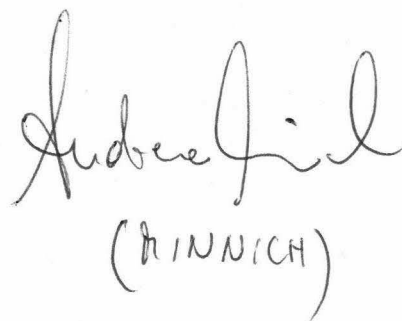 Andrea Minnich
(MINNICH)